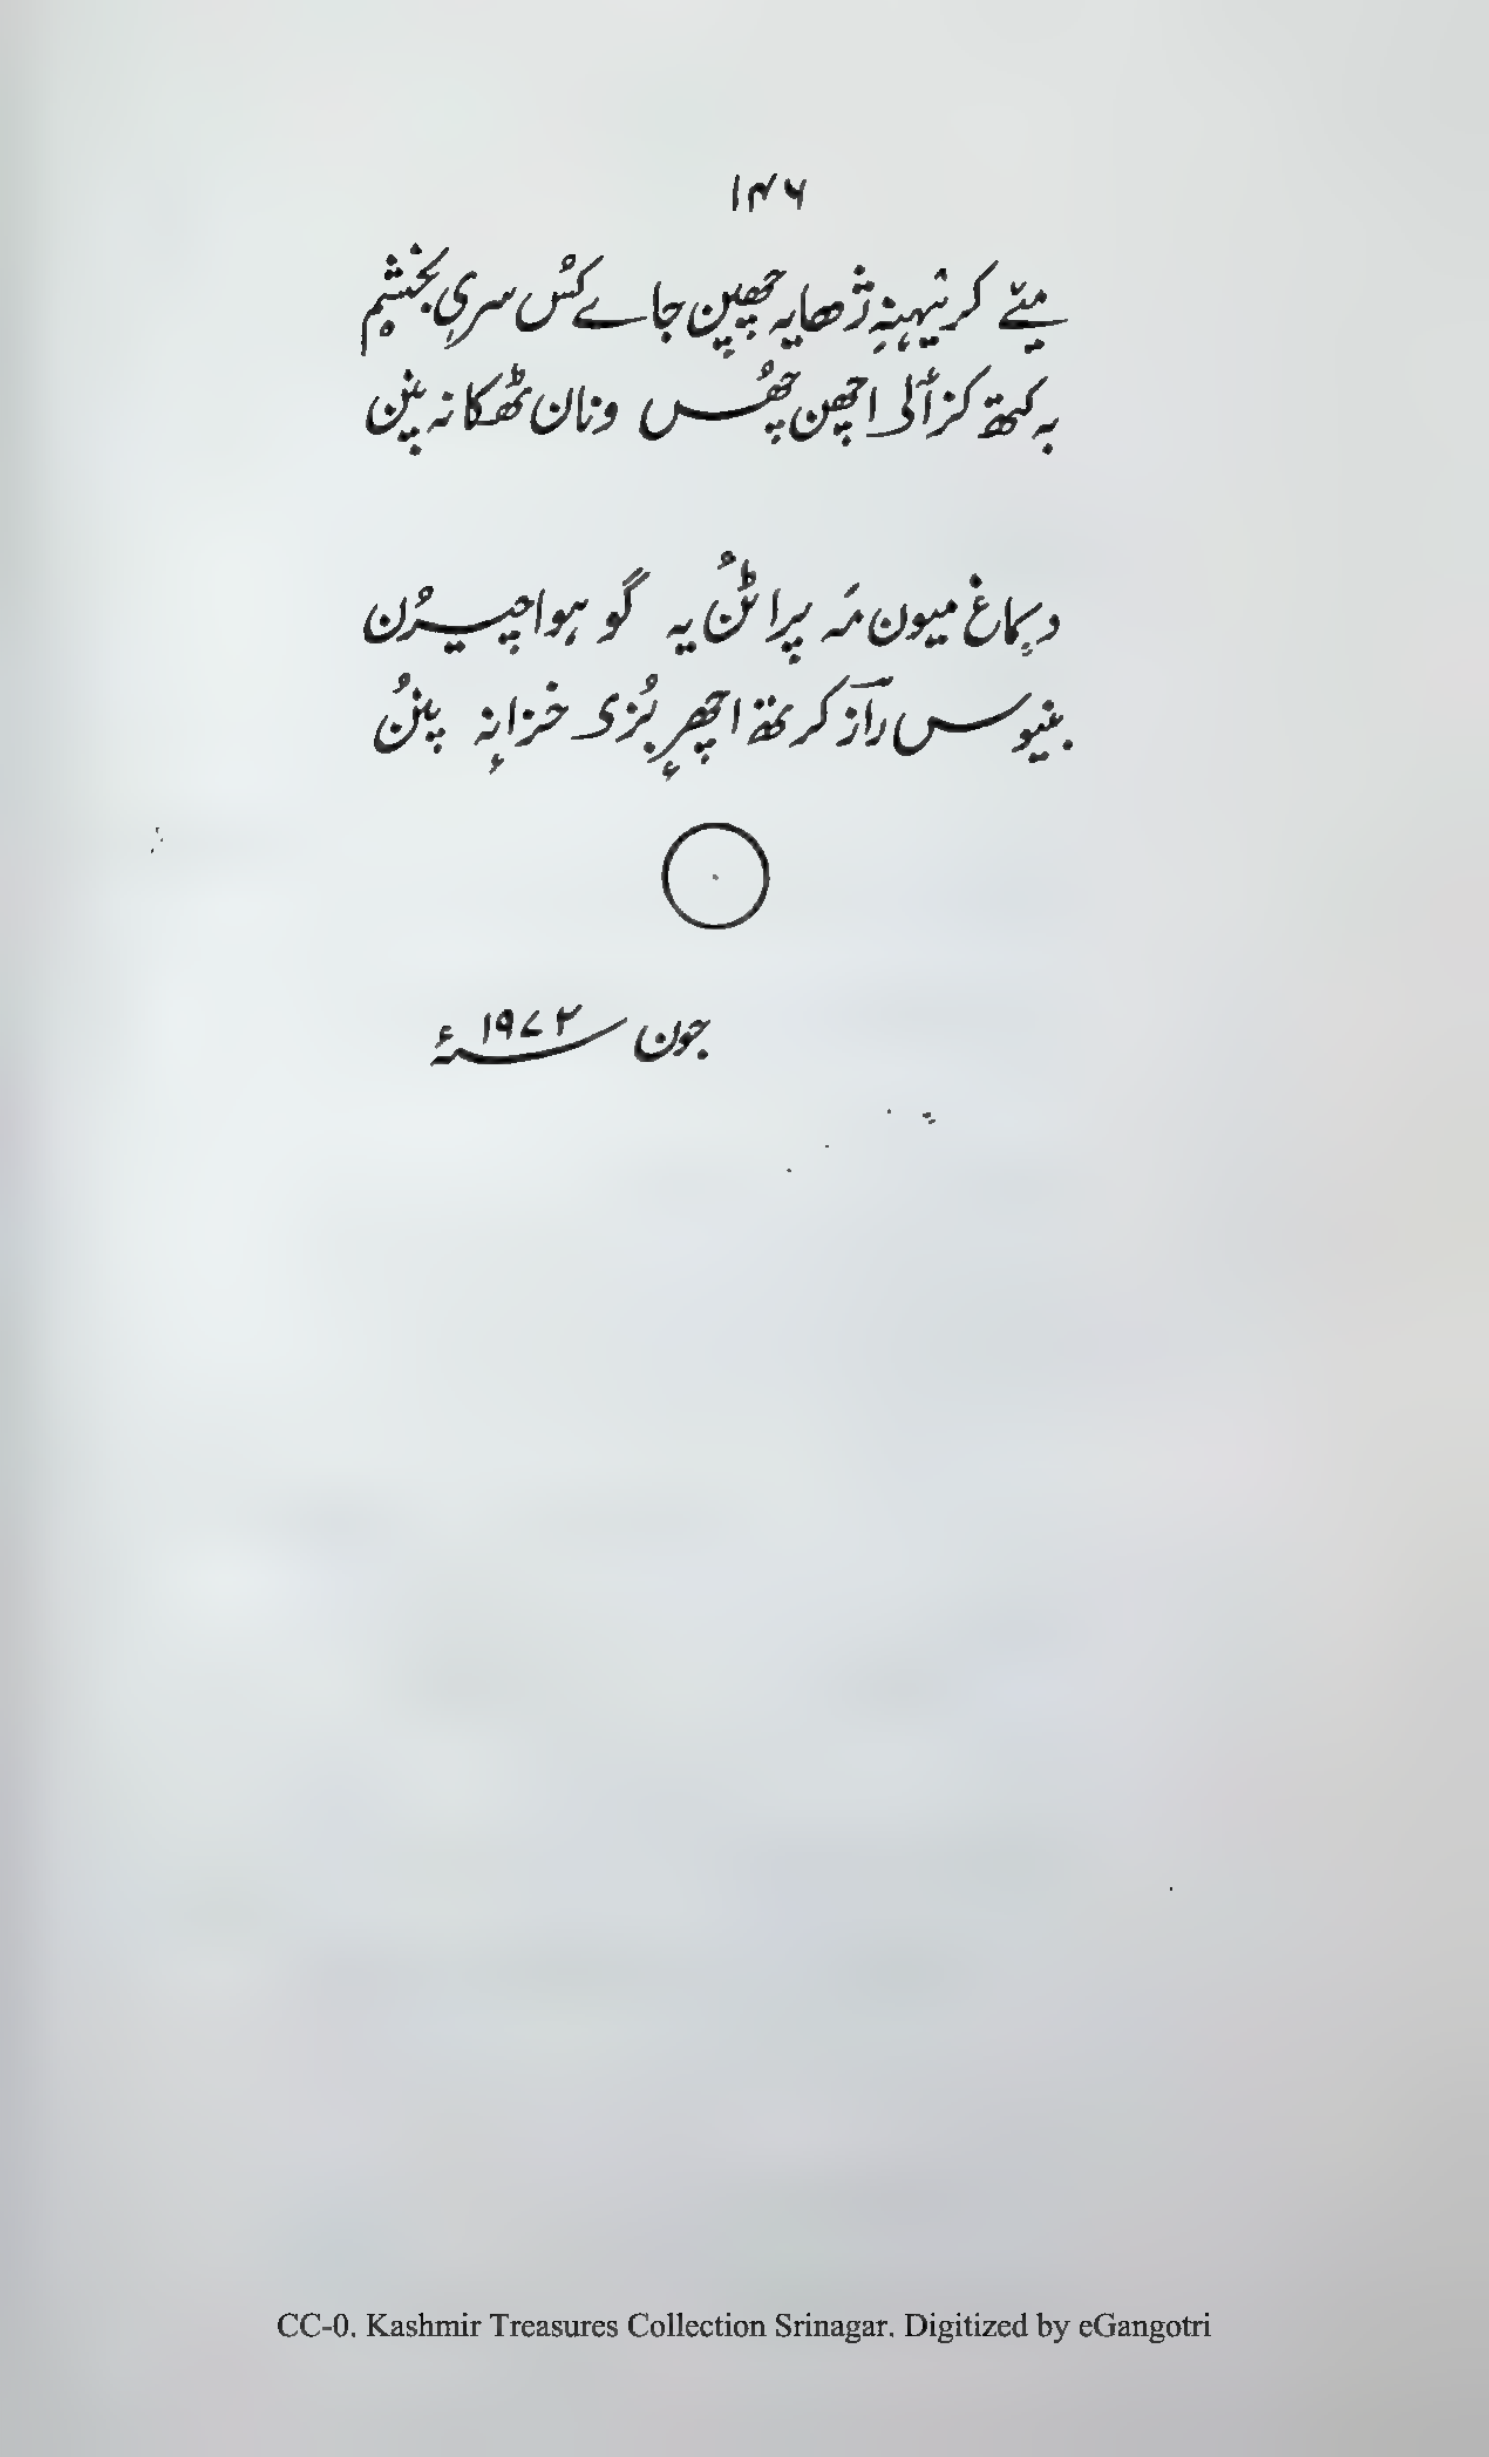 ۱۴۶
میٚے کر شہنہِ ژھایہ چھپن جاے کُس سرىٖ بخشٕم
بہ کتھ کز أ لی اچھن چھُس ونان ٹھکانہ پنن
دماغ میون مَہ پراٹُن یہ گو ہوا چیرُن
بنیوس رآز کرتھ اچھرٕ بُزی خزانہٕ پننُ
جون ۱۹۷۲ء
CC-0. Kashmir Treasures Collection Srinagar. Digitized by eGangotri